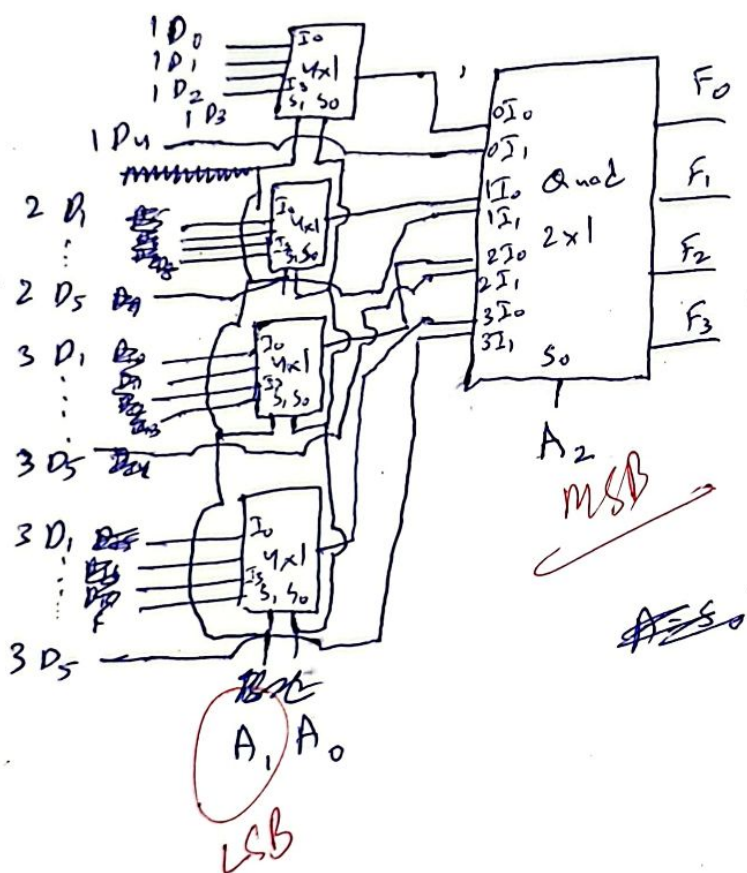 1 D0
1 D1
1 D2
1 D3
1 D4
I0
4x1
I3
S1 S0
2 D1
2 D5
I0
4x1
I3
S1 S0
3 D1
3 D5
I0
4x1
I3
S1 S0
3 D1
3 D5
I0
4x1
I3
S1 S0
A1 A0
LSB
0I0
0I1
1I0
1I1
2I0
2I1
3I0
3I1
Quad
2x1
S0
A2
MSB
F0
F1
F2
F3